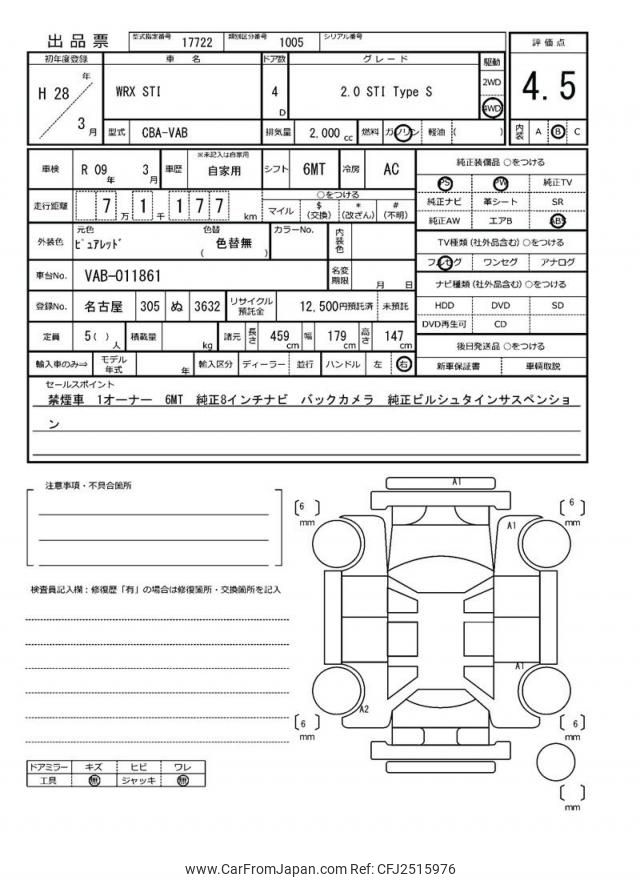 出品票 型式指定番号 17722 類別区分番号 1005 シリアル番号
評価点
4.5
内装 A B C
初年度登録 車名 ドア数 グレード 駆動
H 28 年 3 月
WRX STI 4 D 2.0 STI Type S 2WD 4WD
型式 CBA-VAB 排気量 2,000 cc 燃料 ガソリン 軽油 ( )
車検 R 09 年 3 月 車歴 ※未記入は自家用 自家用 シフト 6MT 冷房 AC
走行距離 7 万 1 千 1 7 7 km
○をつける
マイル $ (交換) * (改ざん) # (不明)
外装色 元色 ピュアレッド 色替 色替無 ( ) カラーNo. 内装色
車台No. VAB-011861 名変期限 月 日
登録No. 名古屋 305 ぬ 3632 リサイクル預託金 12,500円預託済 未預託
定員 5 ( ) 人 積載量 kg 諸元 長さ 459 cm 幅 179 cm 高さ 147 cm
輸入車のみ⇒ モデル年式 年 輸入区分 ディーラー 並行 ハンドル 左 右
純正装備品 ○をつける
PS PW 純正TV
純正ナビ 革シート SR
純正AW エアB ABS
TV種類(社外品含む)○をつける
フルセグ ワンセグ アナログ
ナビ種類(社外品含む)○をつける
HDD DVD SD
DVD再生可 CD
後日発送品 ○をつける
新車保証書 車輌取説
セールスポイント
禁煙車 1オーナー 6MT 純正8インチナビ バックカメラ 純正ビルシュタインサスペンショ
ン
注意事項・不具合箇所
検査員記入欄:修復歴「有」の場合は修復箇所・交換箇所を記入
ドアミラー キズ ヒビ ワレ
工具 無 ジャッキ 無
A1
6 mm
6 mm
A1
A1
A2
6 mm
6 mm
mm
www.CarFromJapan.com Ref: CFJ2515976